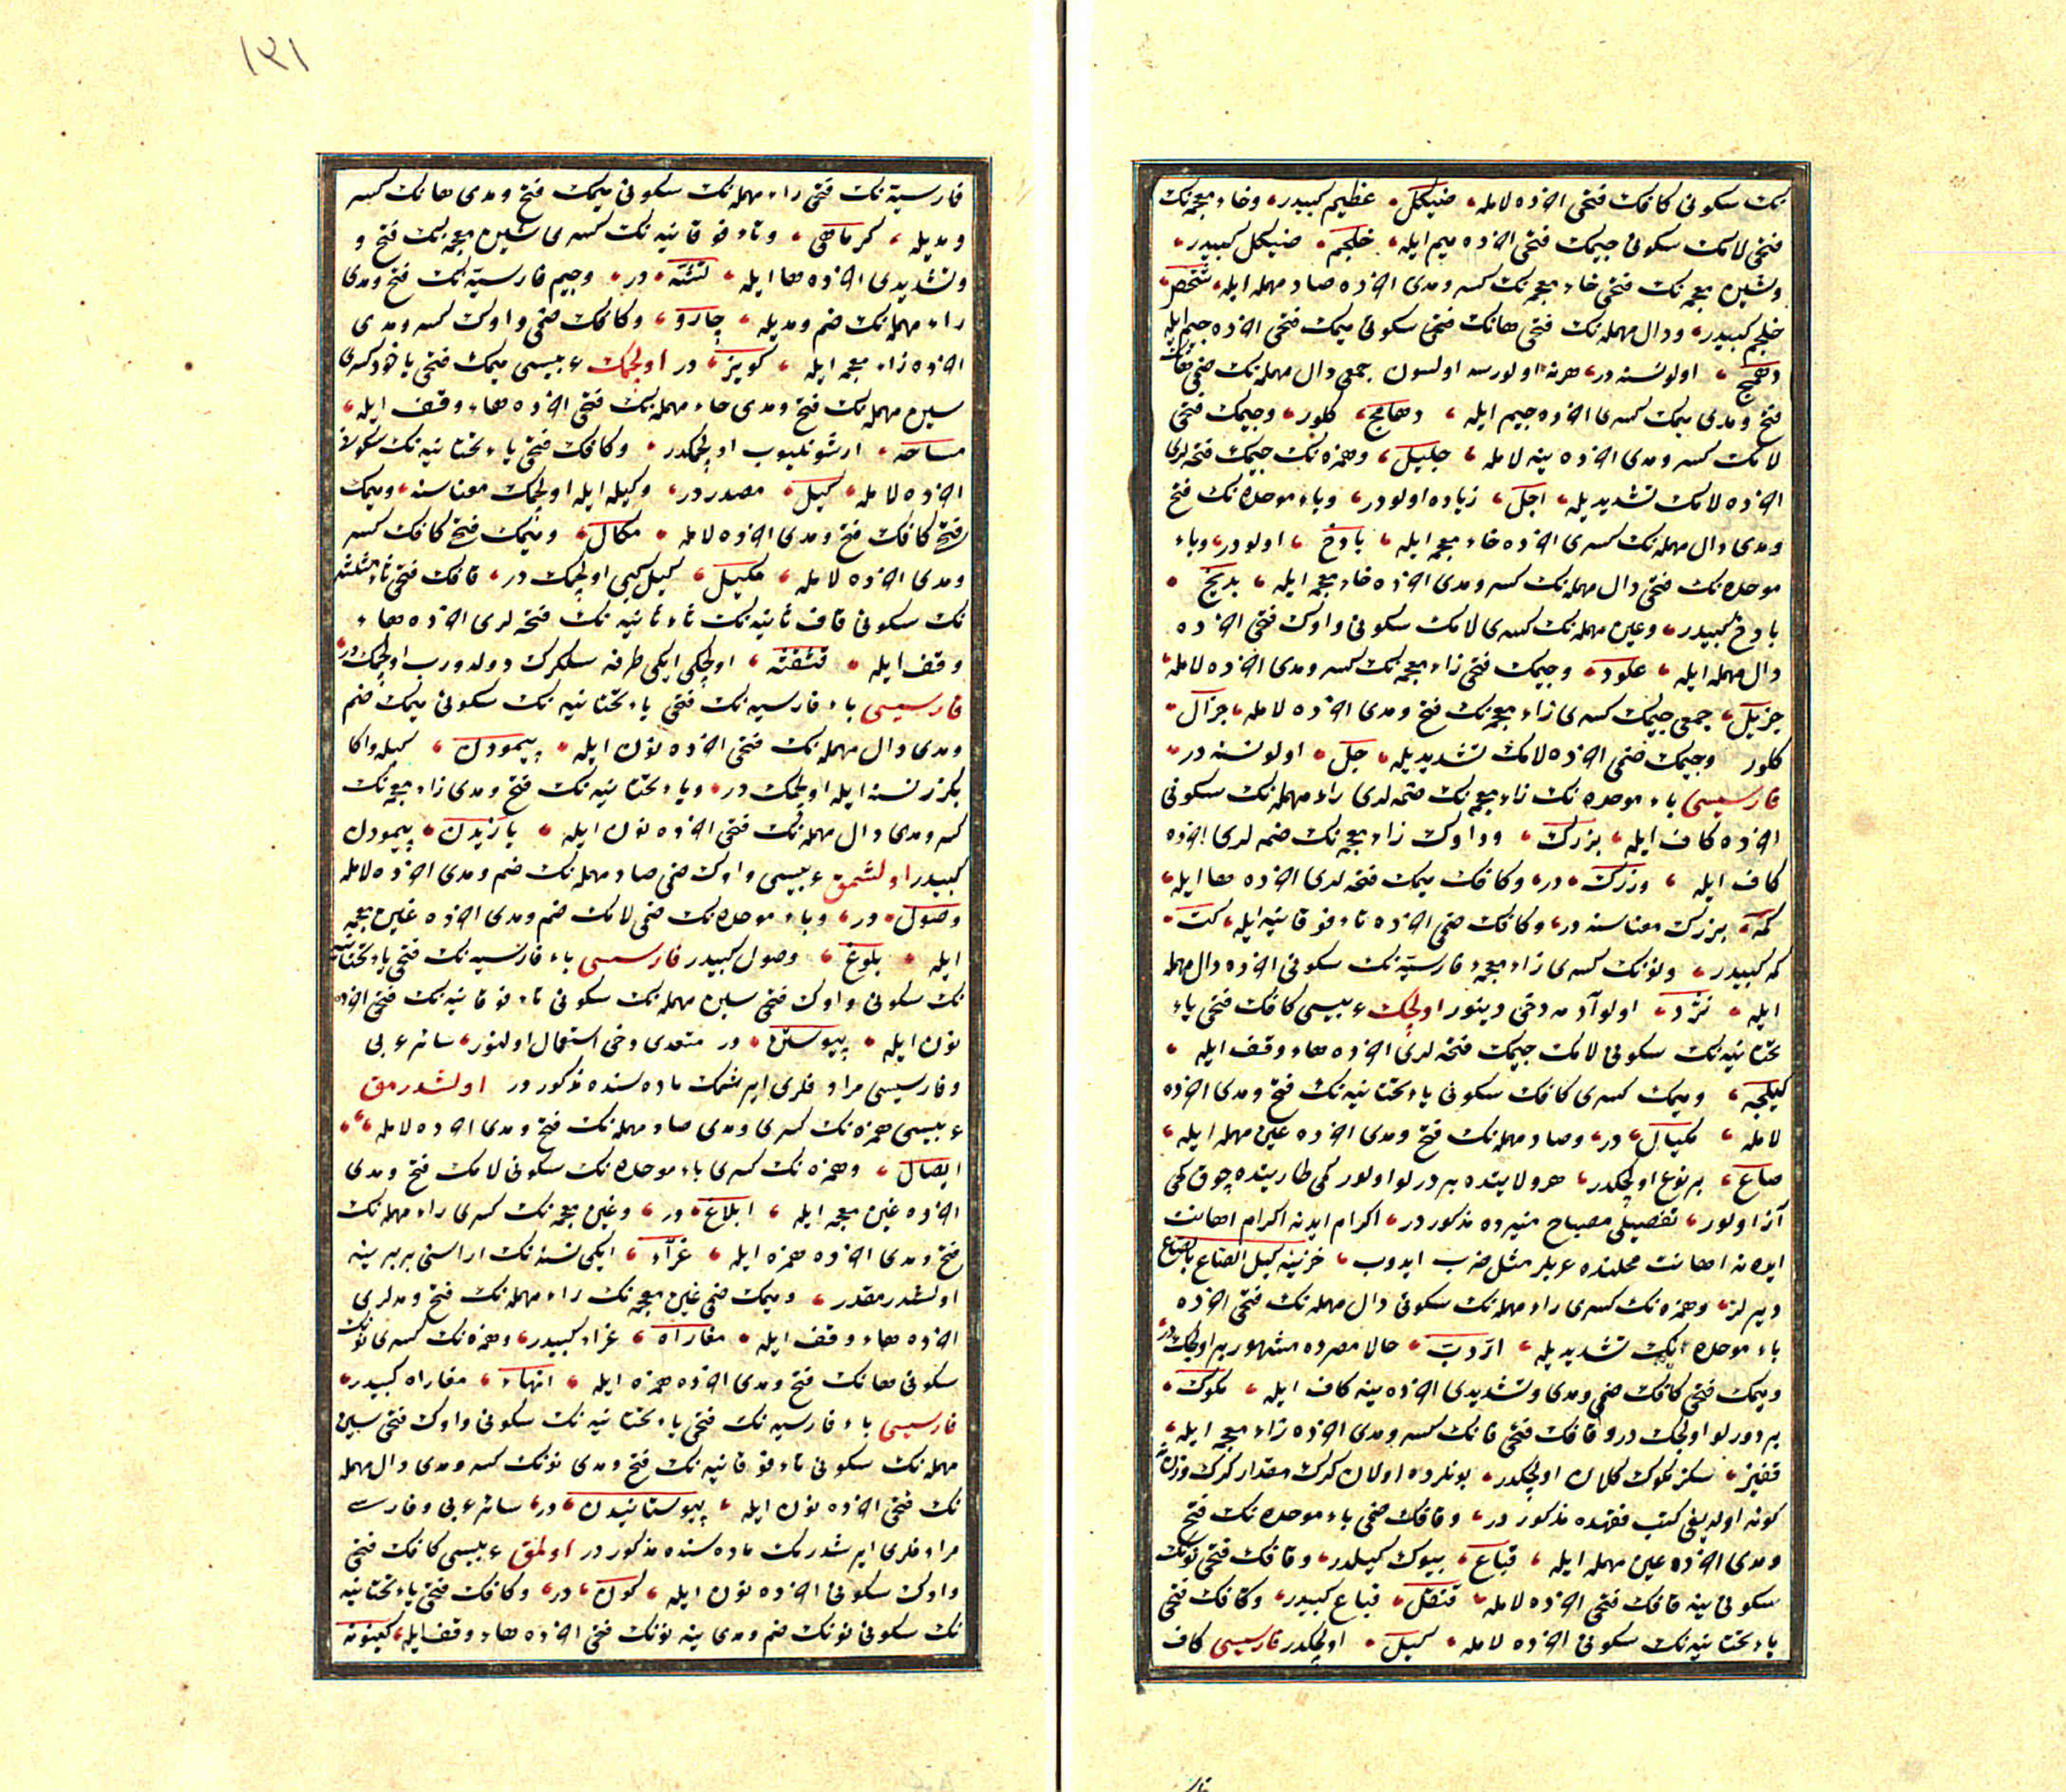 نك سكونى كافك فتحى اخرده لامله ضيكل عظيم كبيدر وخاء معجمه نك
فتحى لامك سكونى جيمك فتحى اخرده ميم ايله خلجم ضيكل كبيدر
وشين معجمه نك فتحى خاء معجمه نك كسر ومدى اخرده صاد مهمله ايله شخيص
خلجم كبيدر ودال مهمله نك فتحى هانك فتحى سكونى ميمك فتحى اخرده جيم ايله
دهمج اولو نسنه در هرنه اولورسه اولسون جمعى دال مهمله نك ضمى هانك
فتح ومدى ميمك كسرى اخرده جيم ايله دهامج كلور وجيمك فتحى
لامك كسر ومدى اخرده ينه لامله جليل وهمزه نك جيمك فتحه لرى
اخرده لامك تشديديله اجل زياده اولودر وباء موحده نك فتح
ومدى دال مهمله نك كسرى اخرده خاء معجمه ايله بادخ اولودر وباء
موحده نك فتحى دال مهمله نك كسر ومدى اخرده خاء معجمه ايله بديخ
بادخ كبيدر وعين مهمله نك كسرى لامك سكونى واوك فتحى اخرده
دال مهمله ايله علود وجيمك فتحى زاء معجمه نك كسر ومدى اخرده لامله
جزيل جمعى جيمك كسرى زاء معجمه نك فتح ومدى اخرده لامله جزال
كلور وجيمك ضمى اخرده لامك تشديديله جل اولو نسنه در
فارسيسى باء موحده نك زاء معجمه نك ضمه لرى راء مهمله نك سكونى
اخرده كاف ايله بزرك وواوك زاء معجمه نك ضمه لرى اخرده
كاف ايله وزرك در وكافك ميمك فتحه لرى اخرده ها ايله
كمه بزرك معناسنه در وكافك ضمى اخرده تاء فوقانيه ايله كت
كمه كبيدر ونونك كسرى زاء معجمۀ فارسيه نك سكونى اخرده دال مهمله
ايله نژد اولو آدمه دخى دينور اولچك عربيسى كافك فتحى ياء
تحتانيه نك سكونى لامك جيمك فتحه لرى اخرده هاء وقف ايله
كيلجه وميمك كسرى كافك سكونى ياء تحتانيه نك فتح ومدى اخرده
لامله مكيال در وصاد مهمله نك فتح ومدى اخرده عين مهمله ايله
صاع بر نوع اولچكدر هر ولايتده بر درلو اولور كمى طاريتده چوق كمى
آز اولور تفصيلى مصباح منيرده مذكوردر اكرام ايدنه اكرام اهانت
ايدنه اهانت محلنده عربلر مثل ضرب ايدوب خزينه كيل الصاع بالصاع
ديرلر وهمزه نك كسرى راء مهمله نك سكونى دال مهمله نك فتحى اخرده
باء موحده نك تشديديله اردب حالا مصرده مشهور بر اولچكدر
وميمك فتحى كافك ضمى ومدى وتشديدى اخرده ينه كاف ايله مكوك
بر درلو اولچكدر وقافك فتحى فانك كسر ومدى اخرده زاء معجمه ايله
قفيز سكز مكوك كلمان اولچكدر بونلرده اولان كرك مقدار كرك وزن نه
كونه اولديغى كتب فقهده مذكوردر وقافك ضمى باء موحده نك فتح
ومدى اخرده عين مهمله ايله قباع بيوك كيلدر وقافك فتحى نونك
سكونى ينه قافك فتحى اخرده لامله قنقل قباع كبيدر وكافك فتحى
ياء تحتانيه نك سكونى اخرده لامله كيل اولچكدر فارسيسى كاف
١٣١
فارسيه نك فتحى راء مهمله نك سكونى ميمك فتح ومدى هانك كسر
ومديله كرماهى وتاء فوقانيه نك كسرى شين معجمه نك فتح و
وتشديدى اخرده ها ايله تشته در وجيم فارسيه نك فتح ومدى
راء مهمله نك ضم ومديله چارو وكافك ضمى واوك كسر ومدى
اخرده زاء معجمه ايله كويز در اولچمك عربيسى ميمك فتحى ياخود كسرى
سين مهمله نك فتح ومدى حاء مهمله نك فتحى اخرده هاء وقف ايله
مساحه ارشونليوب اولچمكدر وكافك فتحى ياء تحتانيه نك سكونى
اخرده لامله كيل مصدردر وكيله ايله اولچمك معناسنه وميمك
فتح كافك فتح ومدى اخرده لامله مكال وميمك فتح كافك كسر
ومدى اخرده لامله مكيل كيل كبى اولچمك در قافك فتحى ثاء مثلثه
نك سكونى قاف ثانيه نك ثاء ثانيه نك فتحه لرى اخرده هاء
وقف ايله قثقثه اولچكى ايكى طرفه سلكرك دولدورب اولچمكدر
فارسيسى باء فارسيه نك فتحى ياء تحتانيه نك سكونى ميمك ضم
ومدى دال مهمله نك فتحى اخرده نون ايله پيمودن كيله واكا
بكزر نسنه ايله اولچمك در وياء تحتانيه نك فتح ومدى زاء معجمه نك
كسر ومدى دال مهمله نك فتحى اخرده نون ايله يازيدن پيمودن
كبيدر اولشمق عربيسى واوك ضمى صاد مهمله نك ضم ومدى اخرده لامله
وصول در وباء موحده نك ضمى لامك ضم ومدى اخرده غين معجمه
ايله بلوغ وصول كبيدر فارسيسى باء فارسيه نك فتحى ياء تحتانيه
نك سكونى واوك فتحى سين مهمله نك سكونى تاء فوقانيه نك فتحى اخرده
نون ايله پيوستن در متعدى دخى استعمال اولنور سائر عربى
وفارسيسى مرادفلرى ايرشمك ماده سنده مذكوردر اولشدرمق
عربيسى همزه نك كسرى ومدى صاد مهمله نك فتح ومدى اخرده لامله
ايصال وهمزه نك كسرى باء موحده نك سكونى لامك فتح ومدى
اخرده غين معجمه ايله ابلاغ در وغين معجمه نك كسرى راء مهمله نك
فتح ومدى اخرده همزه ايله غراء ايكى نسنه نك اراسنى بربرينه
اولشدرمقدر وميمك ضمى غين معجمه نك راء مهمله نك فتح ومدلرى
اخرده هاء وقف ايله مغاراه غراء كبيدر وهمزه نك كسرى نونك
سكونى هانك فتح ومدى اخرده همزه ايله انهاء مغاراه كبيدر
فارسيسى باء فارسيه نك فتحى ياء تحتانيه نك سكونى واوك فتحى سين
مهمله نك سكونى تاء فوقانيه نك فتح ومدى نونك كسر ومدى دال مهمله
نك فتحى اخرده نون ايله پيوستانيدن در سائر عربى وفارسى
مرادفلرى ايرشدرمك ماده سنده مذكوردر اولمق عربيسى كافك فتحى
واوك سكونى اخرده نون ايله كون در وكافك فتحى ياء تحتانيه
نك سكونى نونك ضم ومدى ينه نونك فتحى اخرده هاء وقف ايله كينونه